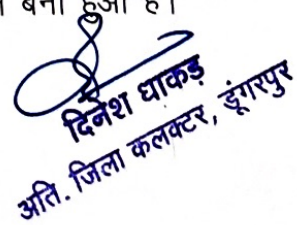 बना हुआ है।
दिनेश धाकड़
अति. जिला कलक्टर, डूंगरपुर